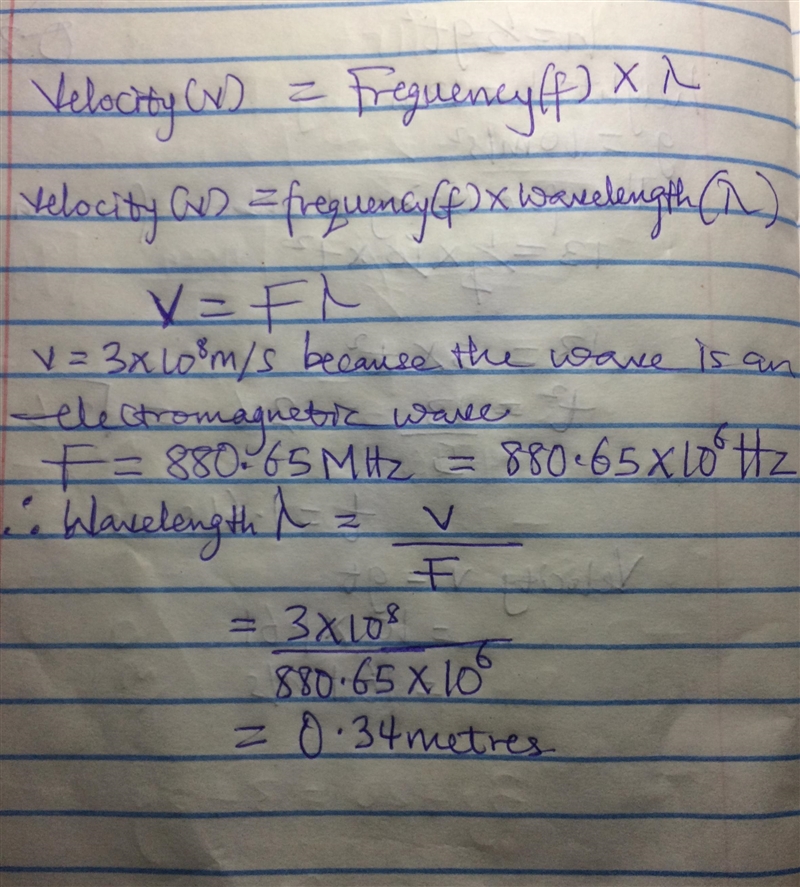 Velocity(v) = Frequency(f) × λ
Velocity (v) = frequency(f) × wavelength(λ)
V = Fλ
v = 3×10⁸m/s because the wave is an
electromagnetic wave
F = 880.65 MHz = 880.65×10⁶ Hz
∴ Wavelength λ = V/F
= 3×10⁸/880.65×10⁶
= 0.34metres